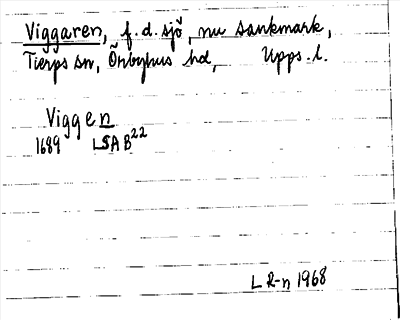 Viggaren, f.d. sjö, nu sankmark,
Tierps sn, Örbyhus hd, Upps. l.
Viggen
1689 LSA B22
L R-n 1968